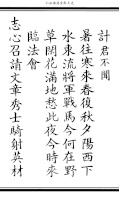 計君不聞
暑往寒來春復秋夕陽西下
水東流將軍戰馬今何在野
草閒花滿地愁此夜今時來
臨法會
志心召請文章秀士騎射英材